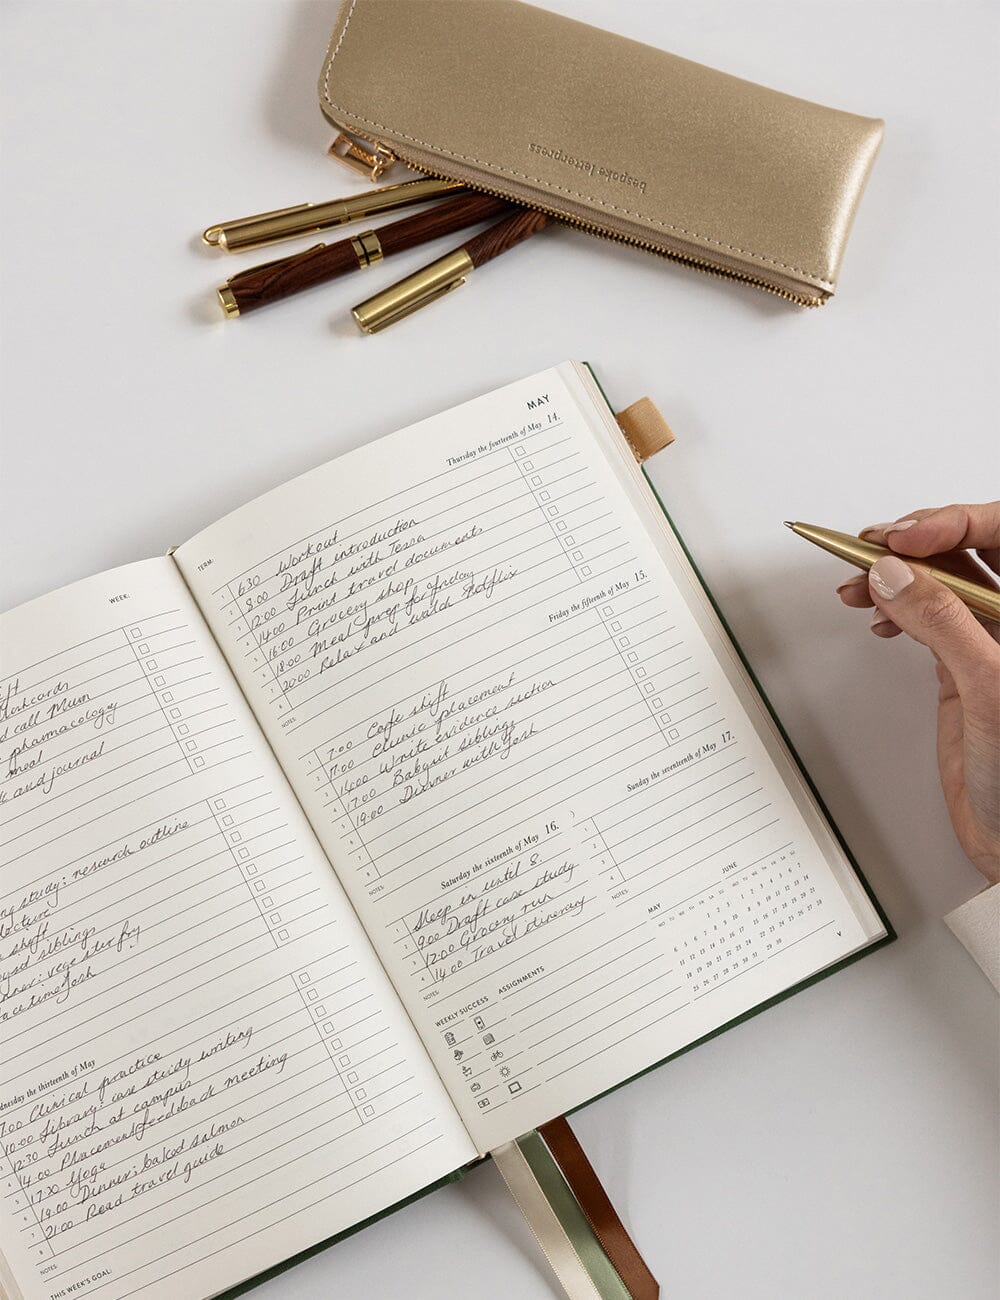 bespoke letterpress
WEEK:
flashcards
call Mum
pharmacology
meal
and journal
study: research outline
shift
siblings
vege stir fry
Facetime Josh
the thirteenth of May
7:00 Clinical practice
10:00 Library: case study writing
12:30 Lunch at campus
14:00 Placement feedback meeting
17:30 Yoga
19:00 Dinner: baked salmon
21:00 Read travel guide
NOTES:
THIS WEEK'S GOAL:
MAY
TERM:
Thursday the fourteenth of May 14.
1 6:30 Workout
2 8:00 Draft introduction
3 12:00 Lunch with Tessa
4 14:00 Print travel documents
5 16:00 Grocery shop
6 18:00 Meal prep for Friday
7 20:00 Relax and watch Netflix
8
NOTES:
Friday the fifteenth of May 15.
1 7:00 Cafe shift
2 11:00 Clinic placement
3 14:00 Write evidence section
4 17:00 Babysit siblings
5 19:00 Dinner with Josh
6
7
8
NOTES:
Saturday the sixteenth of May 16.
1 Sleep in until 8
2 9:00 Draft case study
3 12:00 Grocery run
4 14:00 Travel itinerary
NOTES:
Sunday the seventeenth of May 17.
1
2
3
4
NOTES:
WEEKLY SUCCESS
ASSIGNMENTS
MAY
JUNE